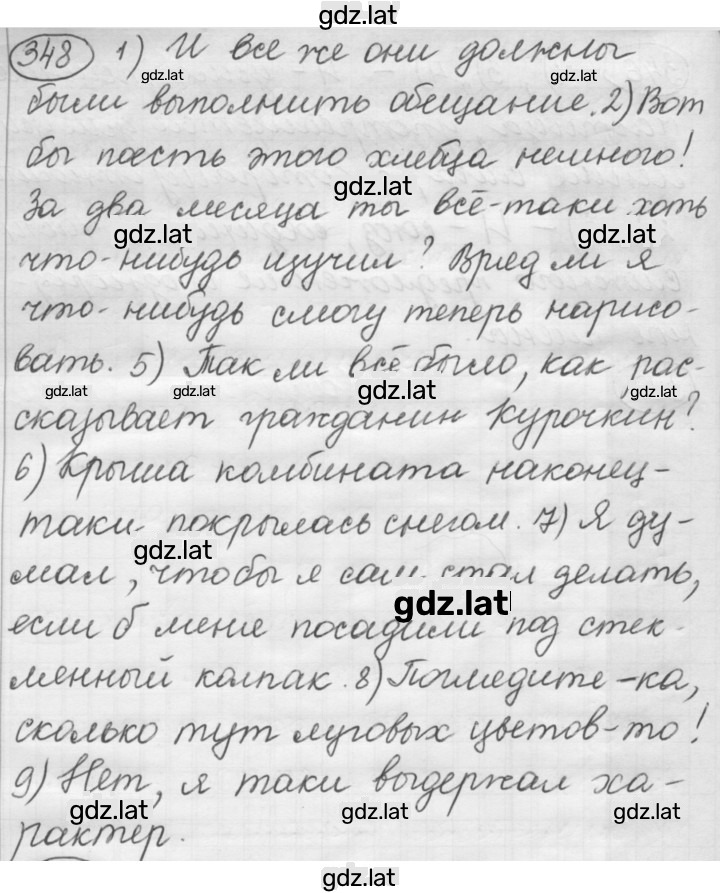 gdz.lat
348 1) И все же они должны
gdz.lat gdz.lat
были выполнить обещание. 2) Вот
бы поесть этого хлебца немного!
gdz.lat
За два месяца ты всё-таки хоть
gdz.lat gdz.lat
что-нибудь изучил? Вряд ли я
что-нибудь смогу теперь нарисо-
вать. 5) Так ли всё было, как рас-
gdz.lat gdz.lat gdz.lat gdz.lat
сказывает гражданин Курочкин?
6) Крыша комбината наконец-
таки покрылась снегом. 7) Я ду-
gdz.lat
мал, что бы я сам стал делать,
gdz.lat
если б меня посадили под стек-
менный колпак. 8) Поглядите-ка,
сколько тут луговых цветов-то!
9) Нет, я таки выдержал ха-
gdz.lat gdz.lat gdz.lat
рактер.
gdz.lat